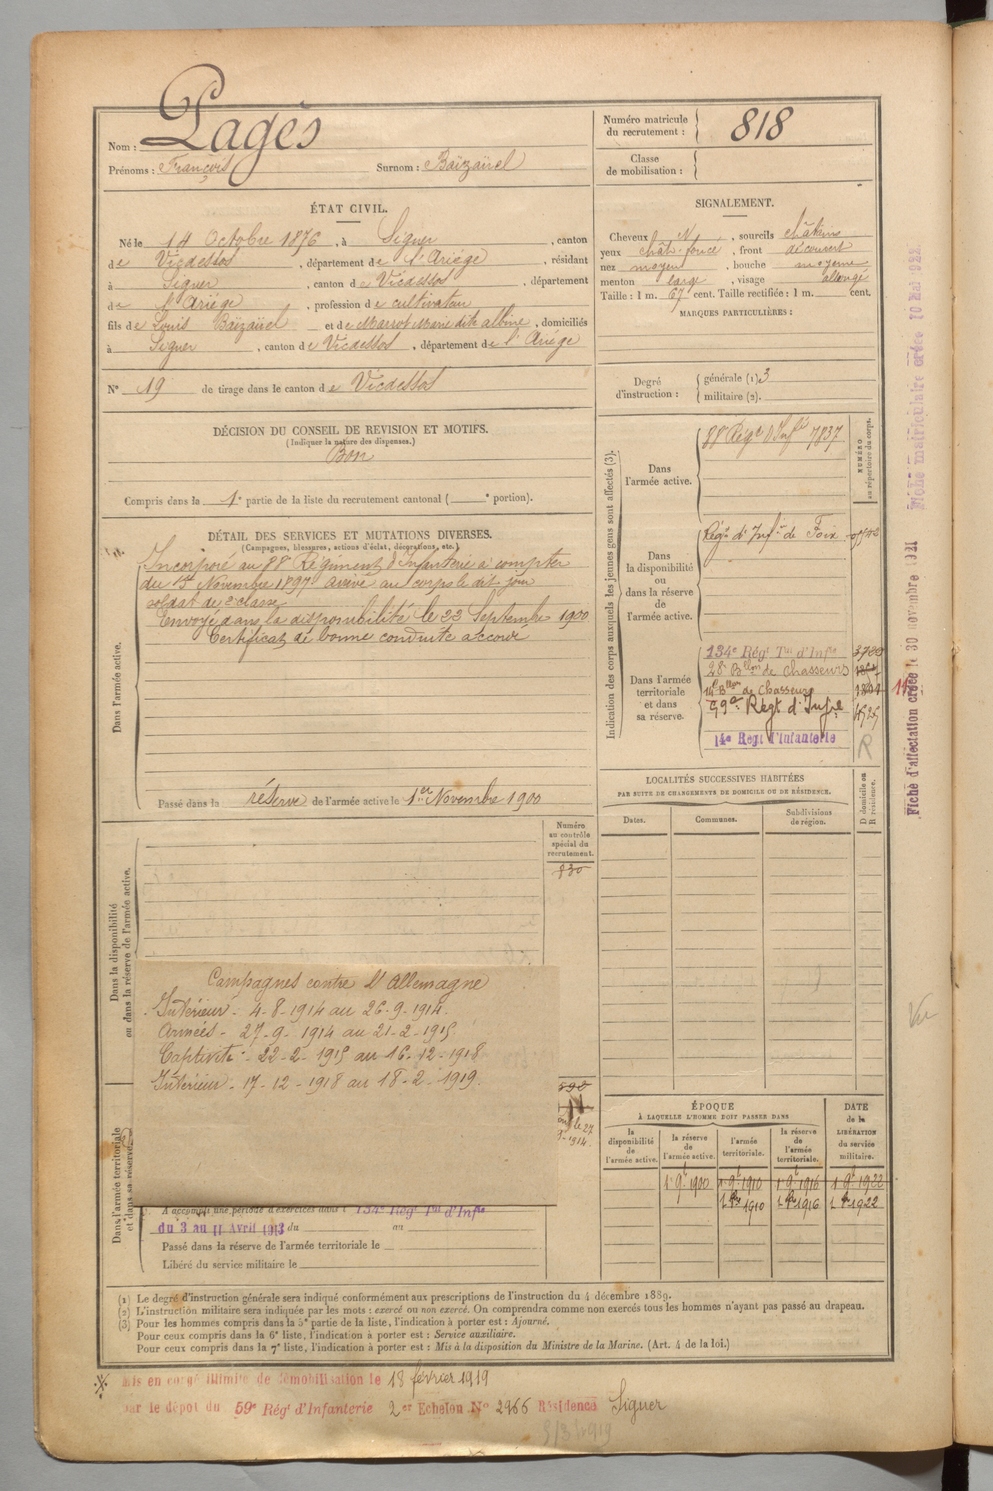 Nom : Pagès
Prénoms : François Surnom : Baïzaüel
Numéro matricule du recrutement : 818
Classe de mobilisation :
ÉTAT CIVIL.
Né le 14 Octobre 1876, à Siguer, canton
de Vicdessos, département de l'Ariège, résidant
à Siguer, canton de Vicdessos, département
de l'Ariège, profession de cultivateur
fils de Louis Baïzaüel et de Marrot Marie dite Albine, domiciliés
à Siguer, canton de Vicdessos, département de l'Ariège
N° 19 de tirage dans le canton de Vicdessos
SIGNALEMENT.
Cheveux N, sourcils châtains
yeux chât-foncé, front découvert
nez moyen, bouche moyenne
menton large, visage allongé
Taille : 1 m. 67 cent. Taille rectifiée : 1 m. cent.
MARQUES PARTICULIÈRES :
Degré d'instruction : générale (1) 3
militaire (2).
DÉCISION DU CONSEIL DE REVISION ET MOTIFS.
(Indiquer la nature des dispenses.)
Bon
Compris dans la 1e partie de la liste du recrutement cantonal ( e portion).
DÉTAIL DES SERVICES ET MUTATIONS DIVERSES.
(Campagnes, blessures, actions d'éclat, décorations, etc.)
Dans l'armée active.
Incorporé au 88e Régiment d'Infanterie à compter
du 15 Novembre 1897 arrivé au corps le dit jour
soldat de 2e classe
Envoyé dans la disponibilité le 22 Septembre 1900
Certificat de bonne conduite accordé
Passé dans la réserve de l'armée active le 1er Novembre 1900
Indication des corps auxquels les jeunes gens sont affectés (3).
NUMÉRO au répertoire du corps.
Dans l'armée active.
88e Régt d'Infie 7837
Dans la disponibilité ou dans la réserve de l'armée active.
Régt d'Infie de Foix
Dans l'armée territoriale et dans sa réserve.
134e Régt Tal d'Infie
28e Bllon de Chasseurs
14e Bllon de Chasseurs
59e Régt d'Infie
14e Régt d'Infanterie
R
LOCALITÉS SUCCESSIVES HABITÉES
PAR SUITE DE CHANGEMENTS DE DOMICILE OU DE RÉSIDENCE.
Dates. Communes. Subdivisions de région. D domicile ou R résidence.
Dans la disponibilité ou dans la réserve de l'armée active.
Numéro au contrôle spécial du recrutement.
830
Campagnes contre l'Allemagne
Intérieur - 4-8-1914 au 26-9-1914.
Armées - 27-9-1914 au 21-2-1915
Captivité - 22-2-1915 au 16-12-1918
Intérieur - 17-12-1918 au 18-2-1919.
Dans l'armée territoriale et dans sa réserve.
A accompli une période d'exercices dans l 134e Régt Tal d'Infie
du 3 au 11 Avril 1913 du au
Passé dans la réserve de l'armée territoriale le
Libéré du service militaire le
ÉPOQUE
À LAQUELLE L'HOMME DOIT PASSER DANS
DATE de la LIBÉRATION du service militaire.
la disponibilité de l'armée active. la réserve de l'armée active. l'armée territoriale. la réserve de l'armée territoriale.
1er 9bre 1900 1er 9bre 1910 1er 9bre 1916 1er 9bre 1922
1910 1916 1922
(1) Le degré d'instruction générale sera indiqué conformément aux prescriptions de l'instruction du 4 décembre 1889.
(2) L'instruction militaire sera indiquée par les mots : exercé ou non exercé. On comprendra comme non exercés tous les hommes n'ayant pas passé au drapeau.
(3) Pour les hommes compris dans la 5e partie de la liste, l'indication à porter est : Ajourné.
Pour ceux compris dans la 6e liste, l'indication à porter est : Service auxiliaire.
Pour ceux compris dans la 7e liste, l'indication à porter est : Mis à la disposition du Ministre de la Marine. (Art. 4 de la loi.)
Mis en congé illimité de démobilisation le 18 février 1919
par le dépôt du 59e Régt d'Infanterie 2er Echelon N° 2966 Résidence Siguer
Fiche d'affectation créée le 30 novembre 1921
Fiche matriculaire créée 10 Mai 1922
Vu